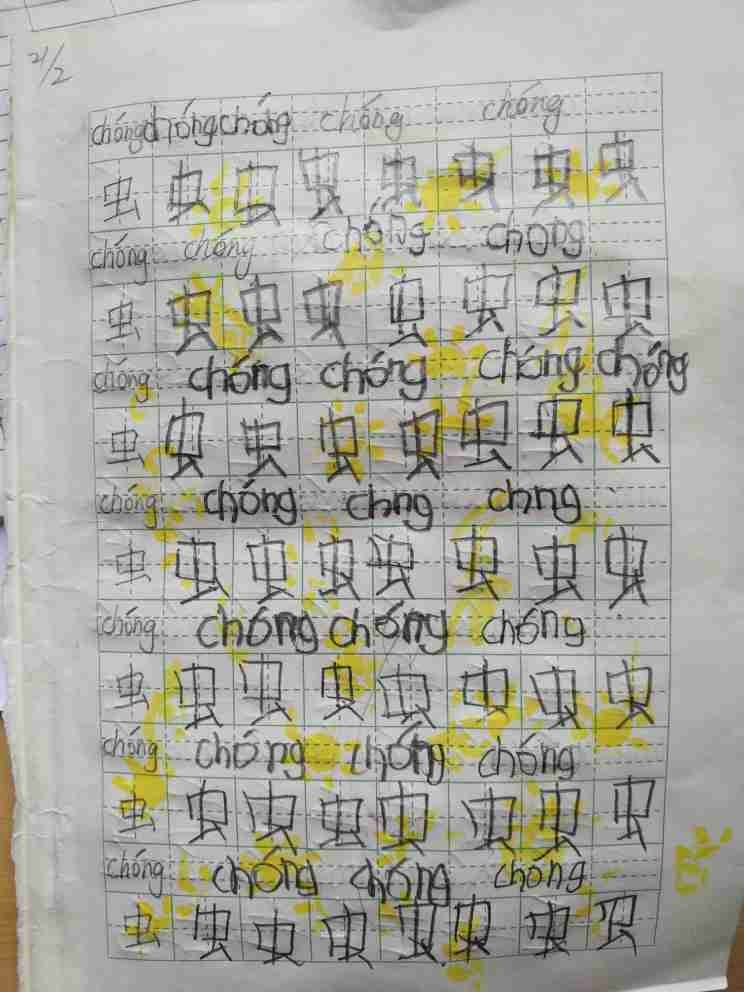 21/2
chóng chóng chóng chóng chóng
虫 虫 虫 虫 虫 虫 虫 虫
chóng chóng chóng chong
虫 虫 虫 虫 虫 虫 虫 虫
chóng chóng chóng chóng chóng
虫 虫 虫 虫 虫 虫 虫 虫
chóng chóng chng chng
虫 虫 虫 虫 虫 虫 虫 虫
chóng chóng chóng chóng
虫 虫 虫 虫 虫 虫 虫 虫
chóng chóng chóng chóng
虫 虫 虫 虫 虫 虫 虫 虫
chóng chóng chóng chóng
虫 虫 虫 虫 虫 虫 虫 虫